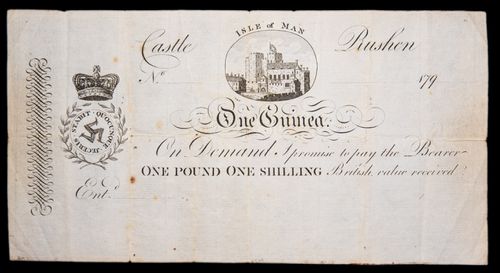 ISLE of MAN
Castle Rushen
No 179
STABIT QUOCUNQUE JECERIS
One Guinea.
On Demand I promise to pay the Bearer
ONE POUND ONE SHILLING British value received
Entd